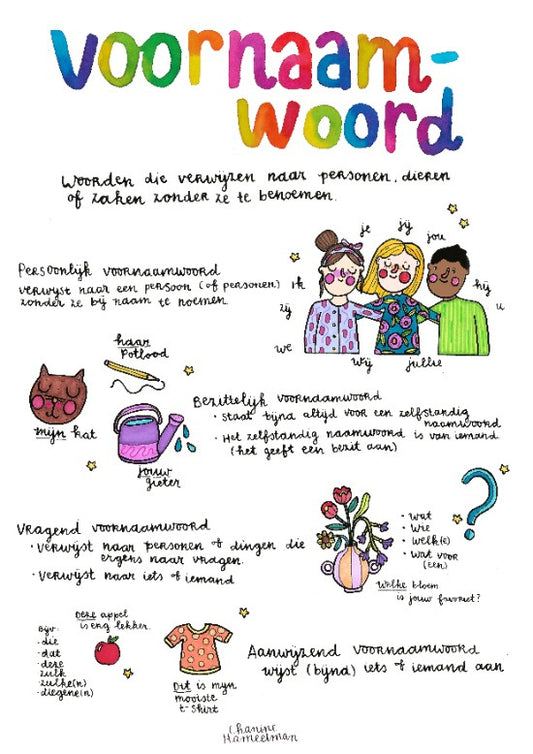 voornaam-
woord
Woorden die verwijzen naar personen, dieren
of zaken zonder ze te benoemen.
je jij jou
Persoonlijk voornaamwoord
verwijst naar een persoon (of personen)
zonder ze bij naam te noemen.
ik
hij
zij
u
we
wij
jullie
haar
potlood
mijn kat
jouw
gieter
Bezittelijk voornaamwoord
• staat bijna altijd voor een zelfstandig
naamwoord
• Het zelfstandig naamwoord is van iemand
(het geeft een bezit aan)
Vragend voornaamwoord
• verwijst naar personen of dingen die
ergens naar vragen.
• verwijst naar iets of iemand
• wat
• wie
• welk(e)
• wat voor
(een)
?
Welke bloem
is jouw favoriet?
Deze appel
is erg lekker.
Bijv:
• die
• dat
• deze
• zulk
• zulke(n)
• diegene(n)
Dit is mijn
mooiste
t-shirt
Aanwijzend voornaamwoord
wijst (bijna) iets of iemand aan
Chanine
Hameetman